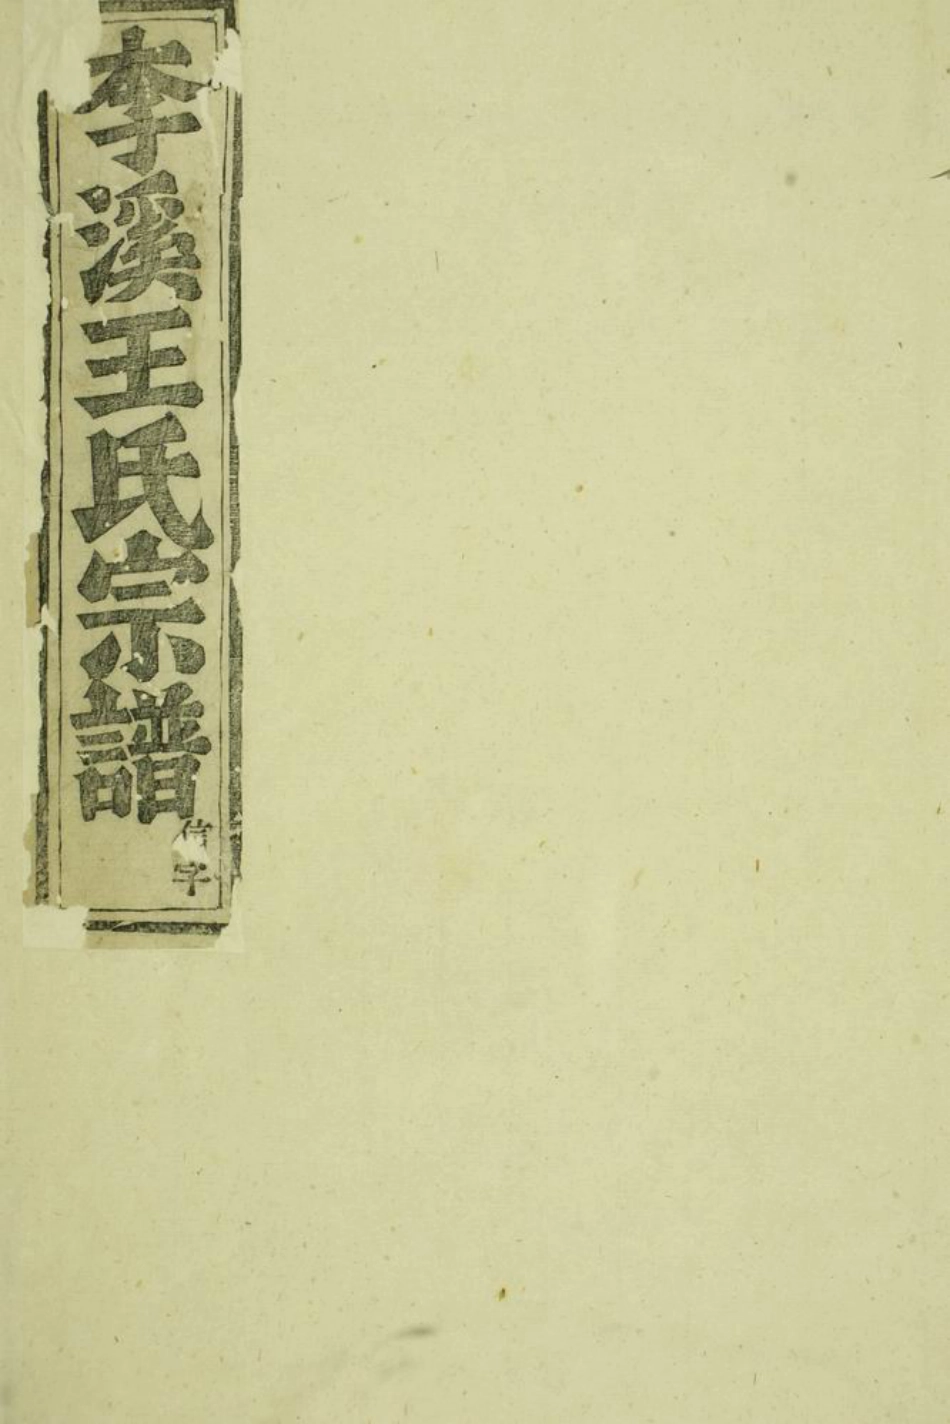 李溪王氏宗譜
信字